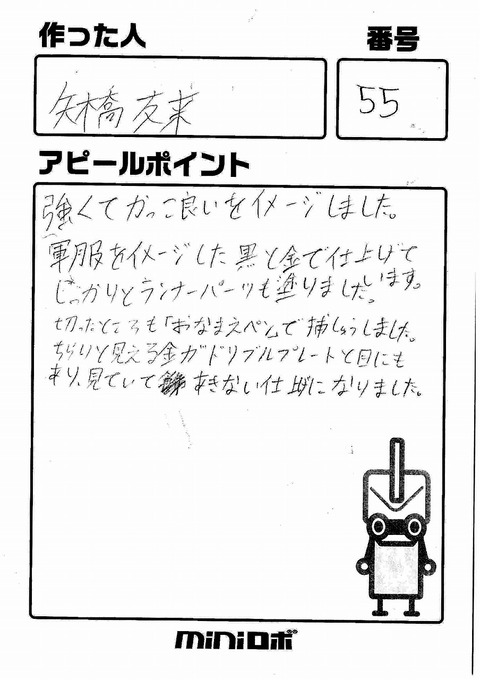 作った人
番号
矢橋 友来
55
アピールポイント
強くてかっこ良いをイメージしました。
軍服をイメージした黒と金で仕上げて
います。
しっかりとランナーパーツも塗りました。
切ったところも「おなまえペン」で捕しゅうしました。
ちらりと見える金がドリブルプレートと目にも
あり、見ていて あきない仕上げになりました。
miniロボ